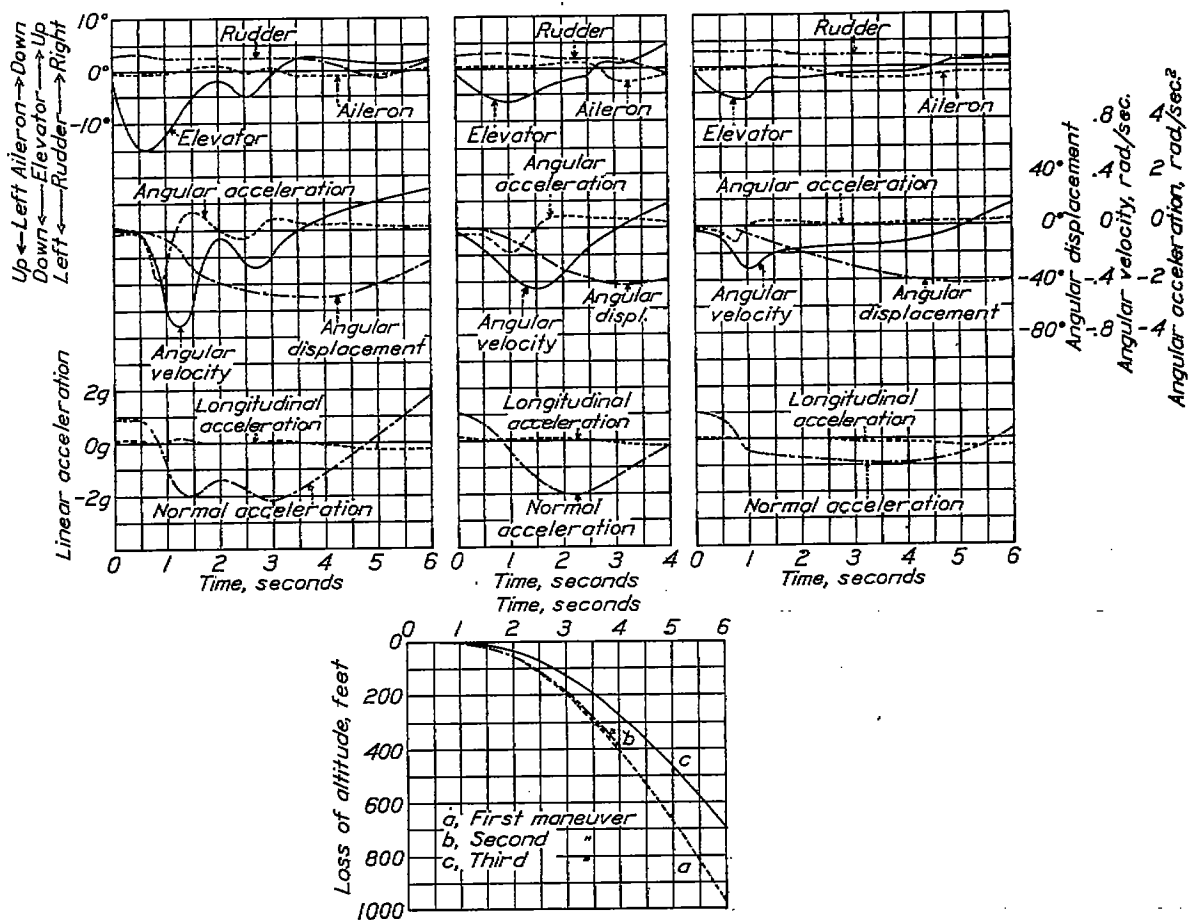 Up←Left Aileron→Down
Down←Elevator→Up
Left←Rudder→Right
10°
0°
-10°
Rudder
Aileron
Elevator
Angular acceleration
Angular
velocity
Angular
displacement
Linear acceleration
2g
0g
-2g
Longitudinal
acceleration
Normal acceleration
0 1 2 3 4 5 6
Time, seconds
Rudder
Aileron
Elevator
Angular
acceleration
Angular
velocity
Angular
displ.
Longitudinal
acceleration
Normal
acceleration
0 1 2 3 4
Time, seconds
Rudder
Aileron
Elevator
Angular acceleration
Angular
velocity
Angular
displacement
Longitudinal
acceleration
Normal acceleration
0 1 2 3 4 5 6
Time, seconds
.8 4
40° .4 2
0° 0 0
-40° -.4 -2
-80° -.8 -4
Angular displacement
Angular velocity, rad/sec.
Angular acceleration, rad/sec.²
Time, seconds
0 1 2 3 4 5 6
Loss of altitude, feet
0
200
400
600
800
1000
b
c
a
a, First maneuver
b, Second "
c, Third "